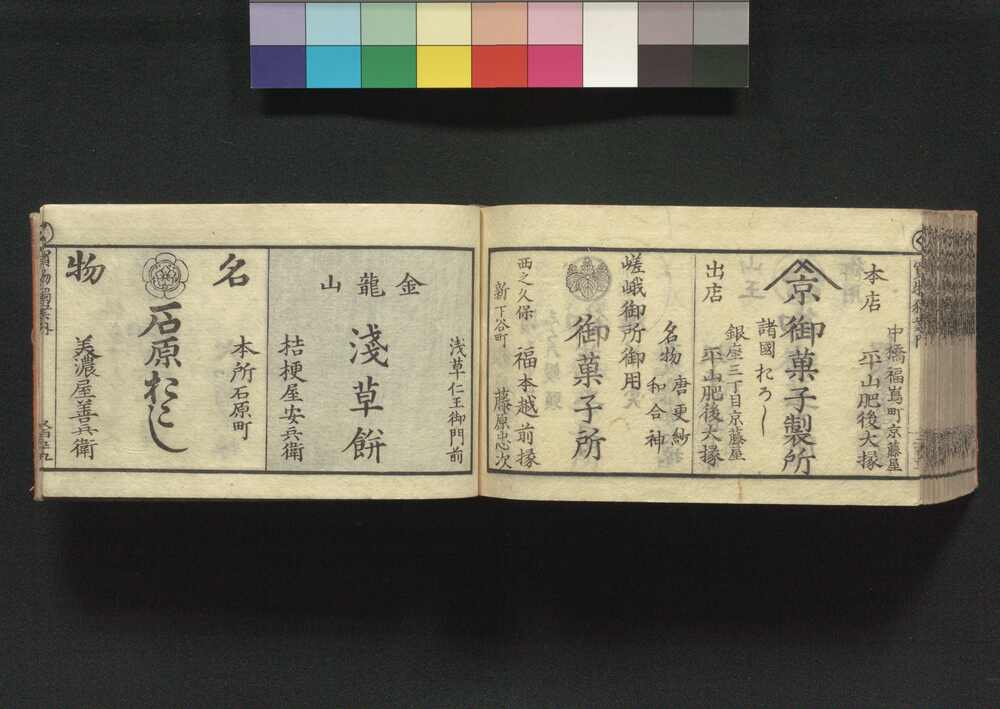 本店
中橋福嶌町京藤屋
平山肥後大掾
京
御菓子製所
諸國おろし
出店
銀座三丁目京藤屋
平山肥後大掾
嵯峨御所御用
名物
唐更紗
和合神
御菓子所
西之久保
新下谷町
福本越前掾
藤原忠次
浅草仁王御門前
金龍山
淺草餅
桔梗屋安兵衛
名物
本所石原町
石原おこし
美濃屋善兵衛